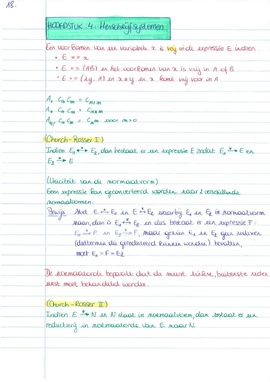 18.
HOOFDSTUK 4: Herschrijfsystemen
Een voorkomen van een variabele x is vrij in de expressie E indien
• E == x
• E == (AB) en het voorkomen van x is vrij in A of B
• E == (λy. A) en x≠y en x komt vrij voor in A
A+ Cn Cm = Cn+m
A* Cn Cm = Cn*m
Cn Cm = m>0
(Church-Rosser I)
Indien E1 ↔ E2, dan bestaat er een expressie E zodat E1 → E en
E2 → E
(Uniciteit van de normaalvorm)
Een expressie kan geconverteerd worden naar 2 verschillende
normaalvormen.
Bewijs: Met E ↔ E1 en E ↔ E2 waarbij E1 en E2 in normaalvorm
staan, dan is E1 ↔ E2 en dus bestaat er een expressie F:
E1 → F en E2 → F, maar gezien E1 en E2 geen redexen
(deeltermen die gereduceerd kunnen worden) bevatten,
moet E1 = F = E2
De normaalorde bepaalt dat de meest linkse, buitenste redex
eerst moet behandeld worden.
(Church-Rosser II)
Indien E → N en N staat in normaalvorm, dan bestaat er een
reductierij in normaalorde van E naar N.